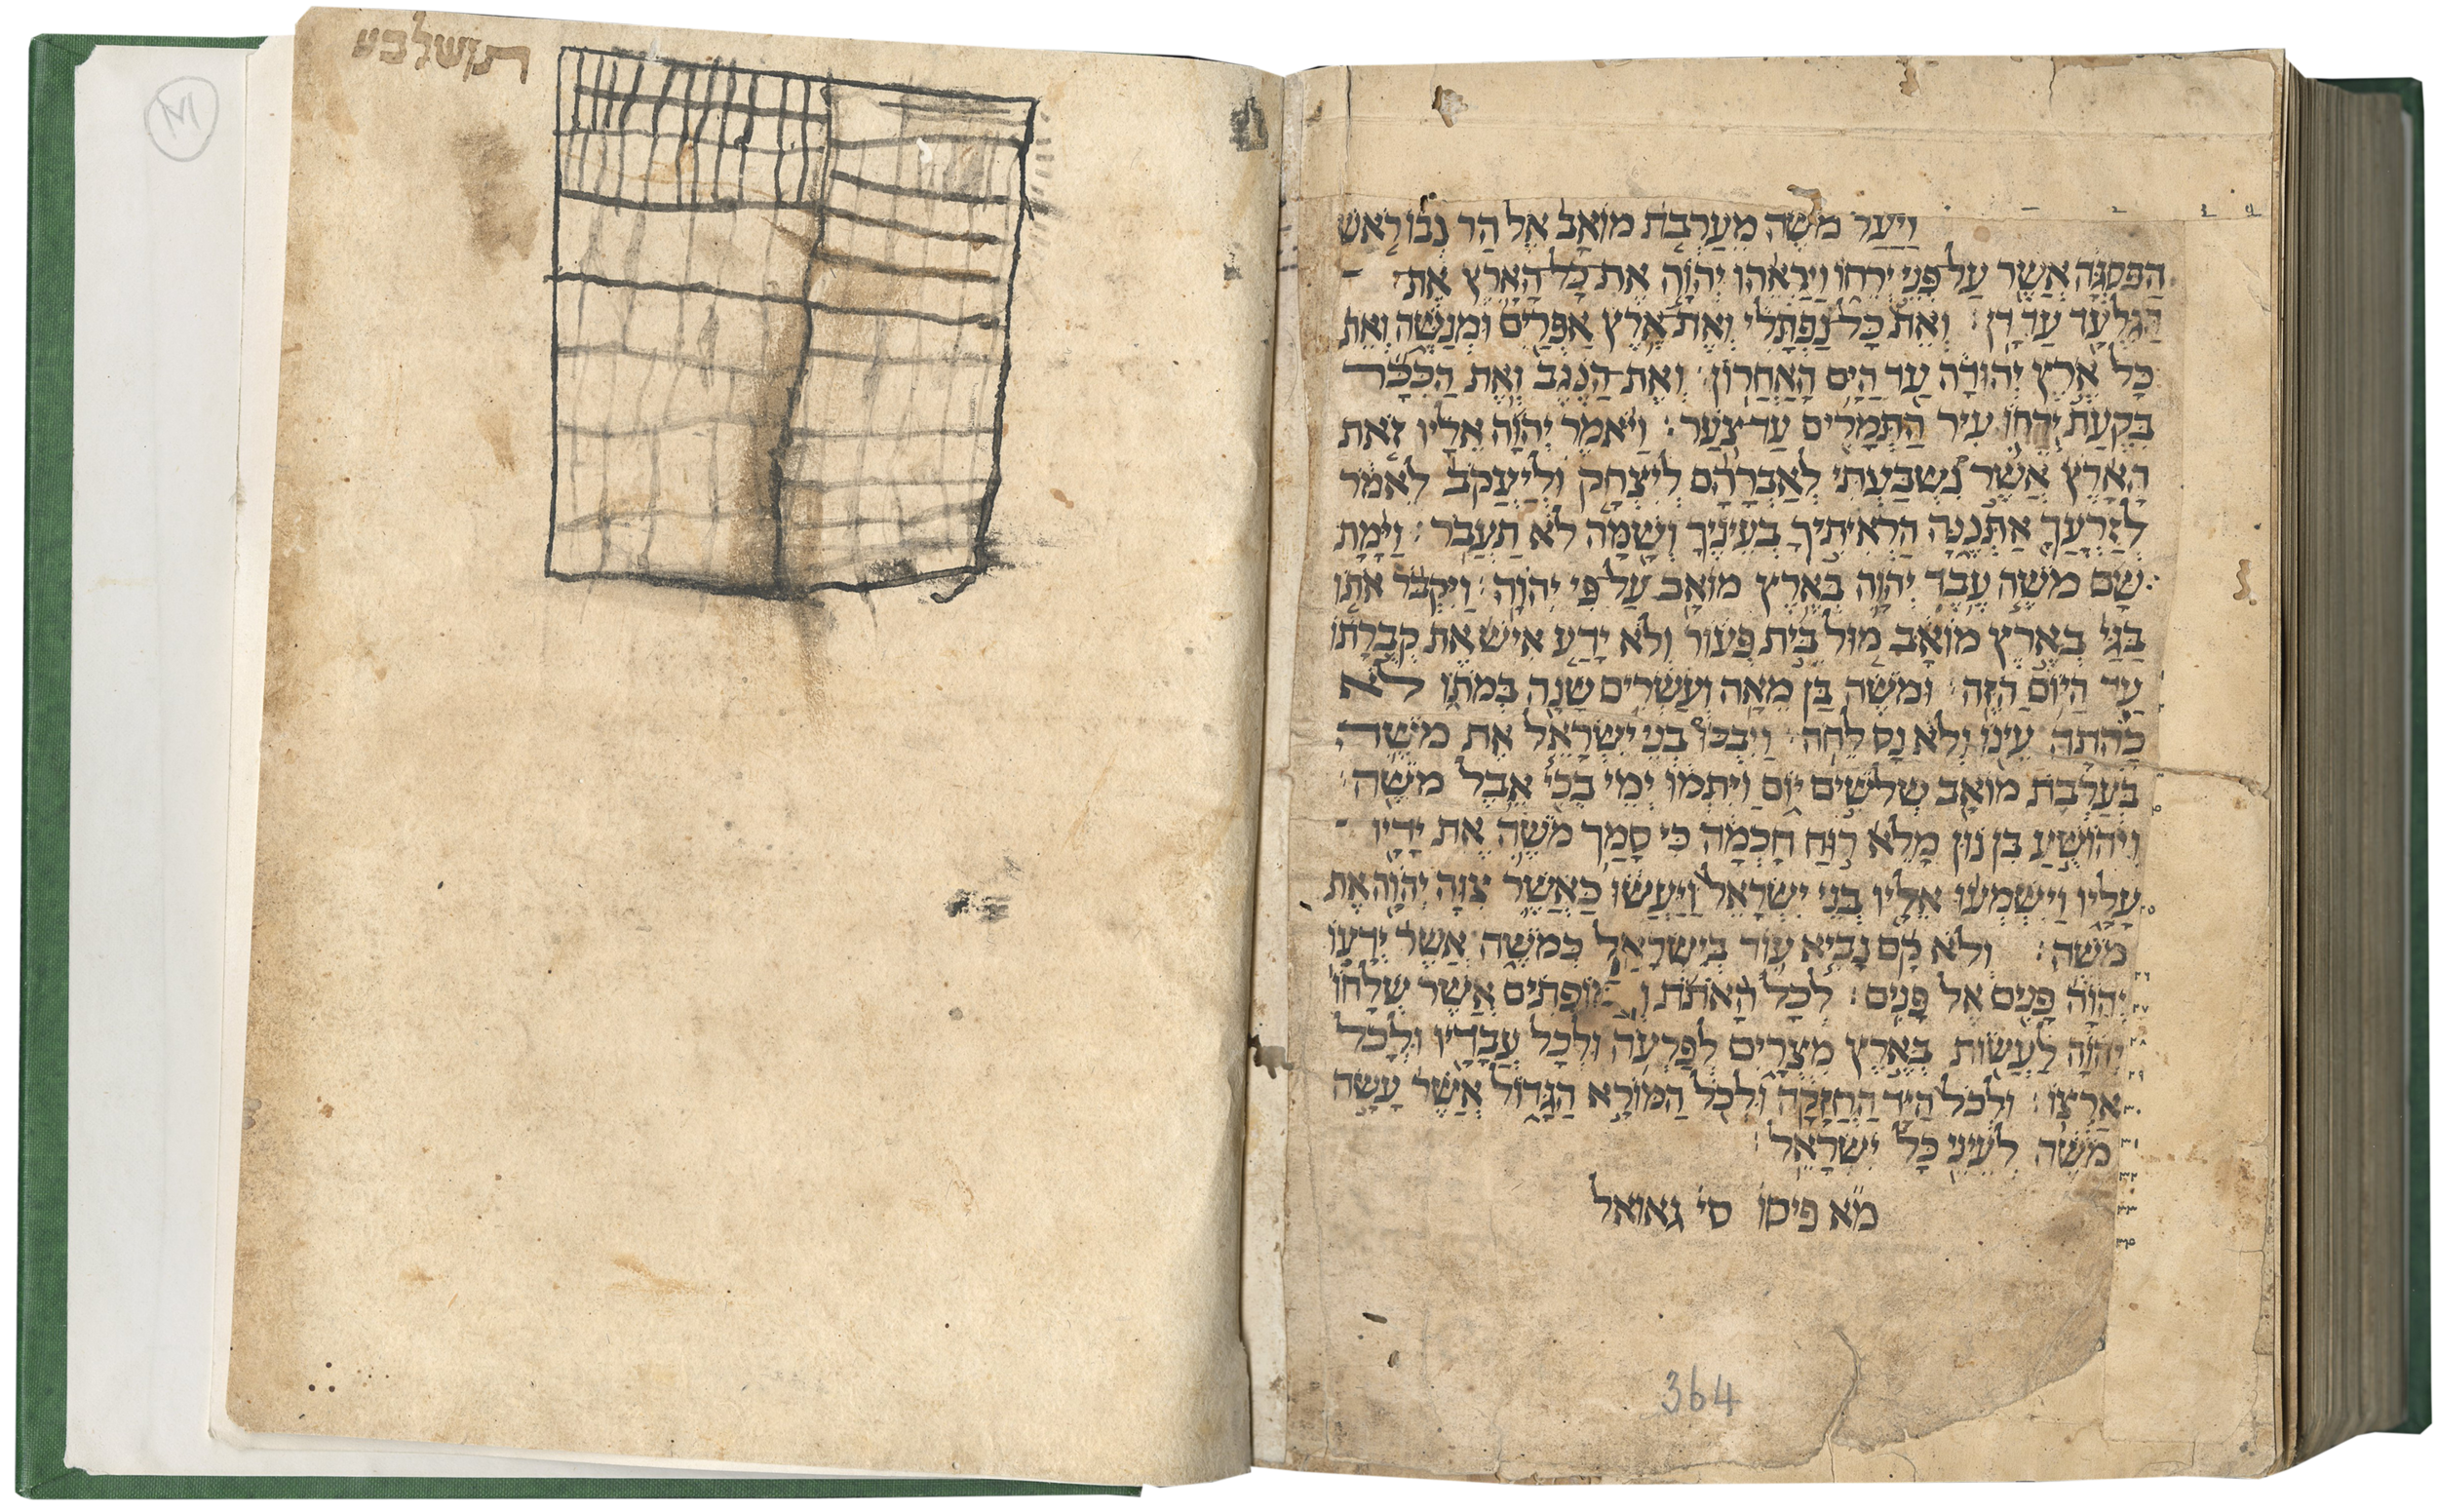 תושלבע
M
ויעל משה מערבת מואב אל הר נבו ראש
הפסגה אשר על פני ירחו ויראהו יהוה את כל הארץ את
הגלעד עד דן: ואת כל נפתלי ואת ארץ אפרים ומנשה ואת
כל ארץ יהודה עד הים האחרון: ואת הנגב ואת הככר
בקעת ירחו עיר התמרים עד צער: ויאמר יהוה אליו זאת
הארץ אשר נשבעתי לאברהם ליצחק וליעקב לאמר
לזרעך אתננה הראיתיך בעיניך ושמה לא תעבר: וימת
שם משה עבד יהוה בארץ מואב על פי יהוה: ויקבר אתו
בגי בארץ מואב מול בית פעור ולא ידע איש את קברתו
עד היום הזה: ומשה בן מאה ועשרים שנה במתו לא
כהתה עינו ולא נס לחה: ויבכו בני ישראל את משה
בערבת מואב שלשים יום ויתמו ימי בכי אבל משה:
ויהושע בן נון מלא רוח חכמה כי סמך משה את ידיו
עליו וישמעו אליו בני ישראל ויעשו כאשר צוה יהוה את
משה: ולא קם נביא עוד בישראל כמשה אשר ידעו
יהוה פנים אל פנים: לכל האתת והמופתים אשר שלחו
יהוה לעשות בארץ מצרים לפרעה ולכל עבדיו ולכל
ארצו: ולכל היד החזקה ולכל המורא הגדול אשר עשה
משה לעיני כל ישראל:
מ״א פיסו סי׳ גאואל
364